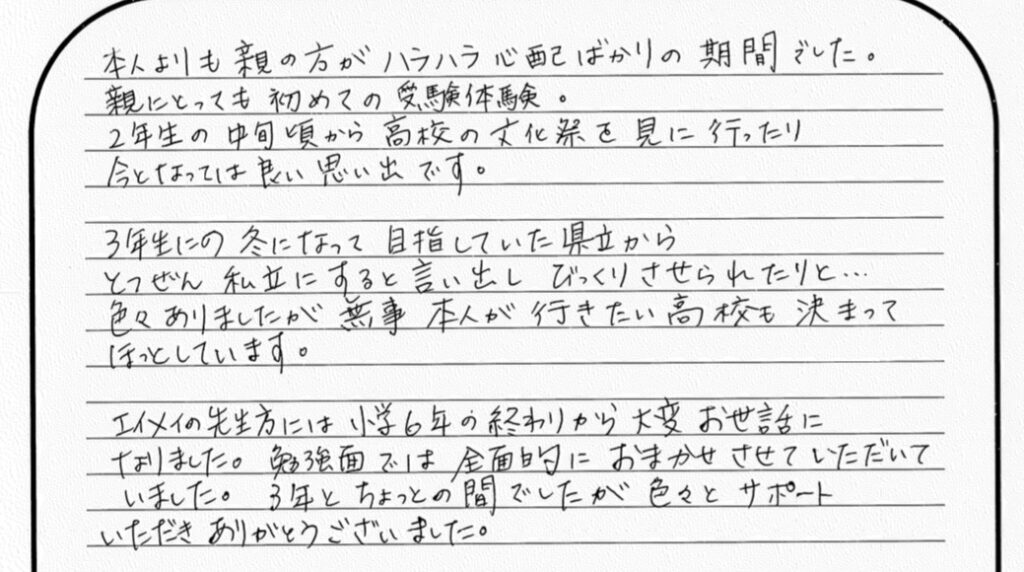 本人よりも親の方がハラハラ心配ばかりの期間でした。
親にとっても初めての受験体験。
2年生の中旬頃から高校の文化祭を見に行ったり
今となっては良い思い出です。
3年生にの冬になって目指していた県立から
とつぜん私立にすると言い出しびっくりさせられたりと…
色々ありましたが無事本人が行きたい高校も決まって
ほっとしています。
エイメイの先生方には小学6年の終わりから大変お世話に
なりました。勉強面では全面的におまかせさせていただいて
いました。3年とちょっとの間でしたが色々とサポート
いただきありがとうございました。